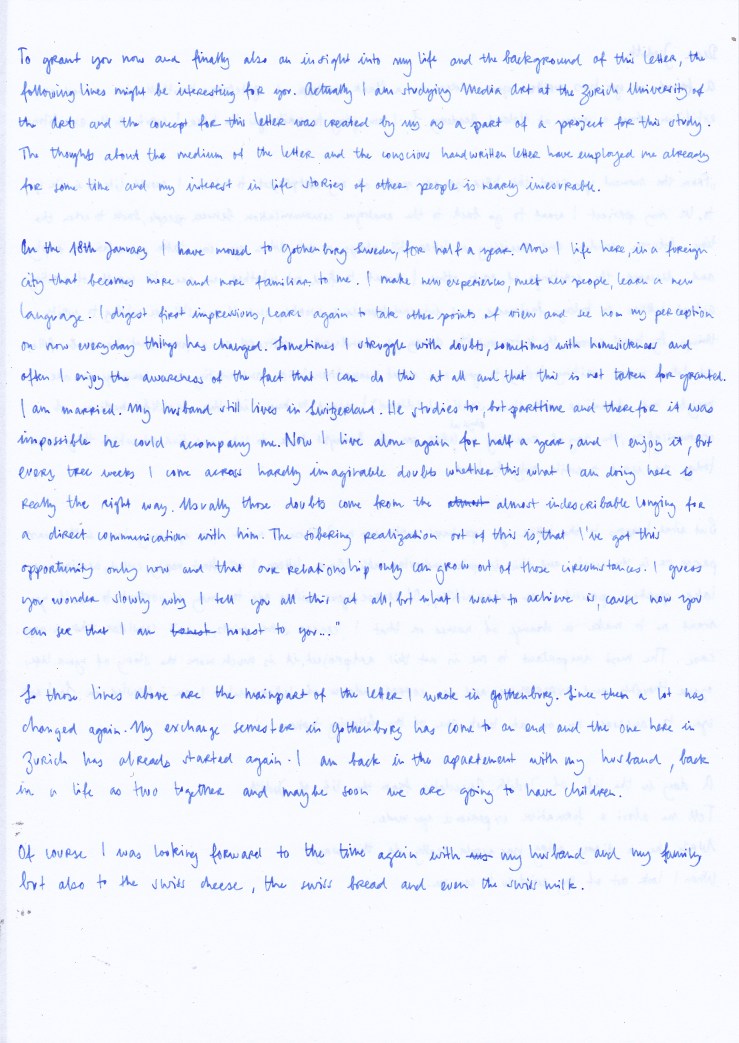 To grant you now and finally also an insight into my life and the background of this letter, the
following lines might be interesting for you. Actually I am studying Media Art at the Zurich University of
the Arts and the concept for this letter was created by my as a part of a project for this study.
The thoughts about the medium of the letter and the conscious handwritten letter have employed me already
for some time and my interest in life stories of other people is nearly
On the 18th January I have moved to Gothenburg Sweden, for half a year. Now I life here, in a foreign
city that becomes more and more familiar to me. I make new experiences, meet new people, learn a new
language. I digest first impressions, learn again to take other points of view and see how my perception
on now everyday things has changed. Sometimes I struggle with doubts, sometimes with homesickness and
often I enjoy the awareness of the fact that I can do this at all and that this is not taken for granted.
I am married. My husband still lives in Switzerland. He studies too, but parttime and therefor it was
impossible he could accompany me. Now I live alone again for half a year, and I enjoy it, but
every tree weeks I come across hardly imaginable doubts whether this what I am doing here is
really the right way. Usually those doubts come from the almost almost indescribable longing for
a direct communication with him. The sobering realization out of this is, that I've got this
opportunity only now and that our relationship only can grow out of those circumstances. I guess
you wonder slowly why I tell you all this at all, but what I want to achieve is, cause now you
can see that I am honest to you..."
So those lines above are the mainpart of the letter I wrote in Gothenburg. Since then a lot has
changed again. My exchange semester in Gothenburg has come to an end and the one here in
Zurich has already started again. I am back in the apartement with my husband, back
in a life as two together and maybe soon we are going to have children.
Of course I was looking forward to the time again with my husband and my family
but also to the swiss cheese, the swiss bread and even the swiss milk.